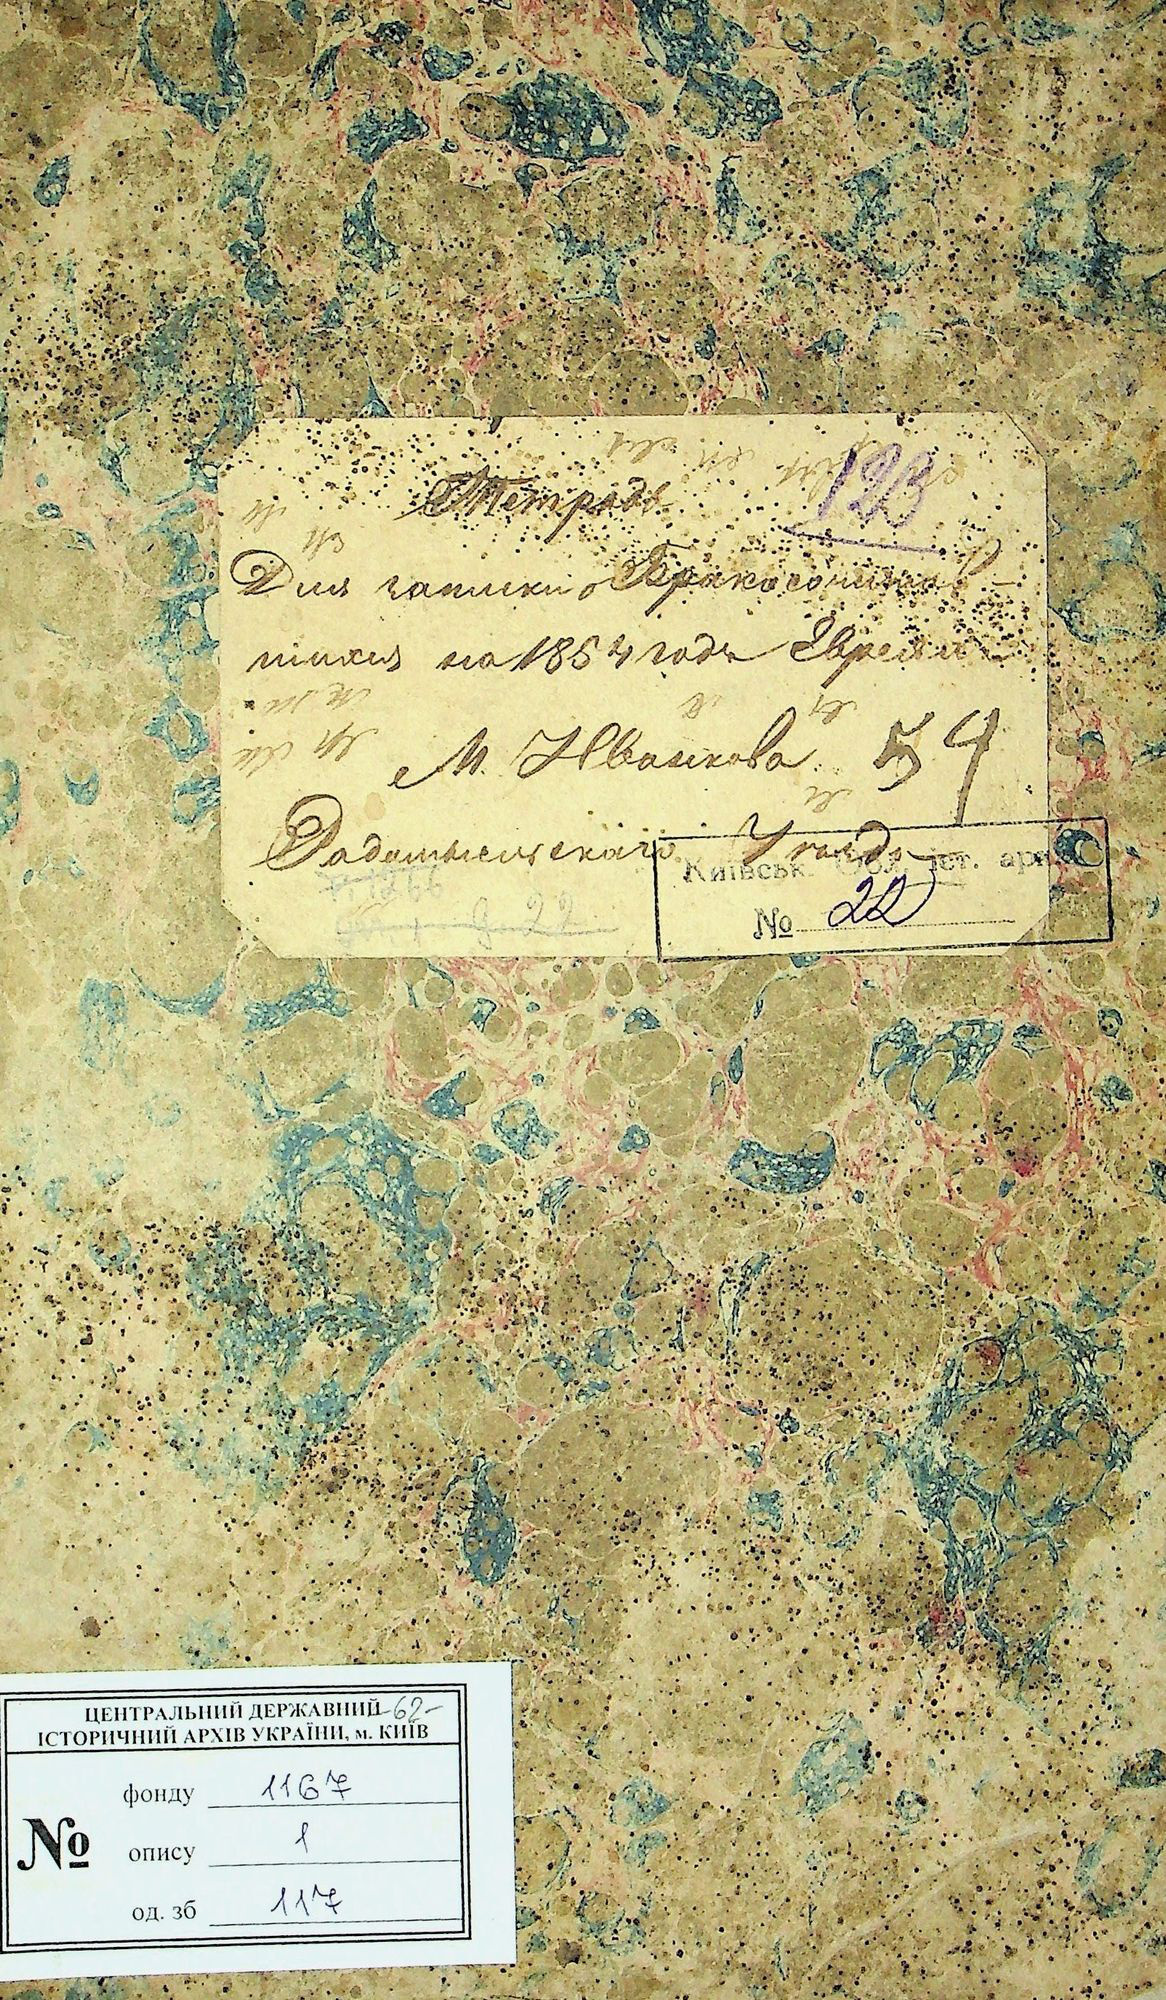 123
Тетрадь
Для записки о Бракосочетав-
шихся на 1854 годъ Евреяхъ
М. Иванкова. 54
Радомысльскаго Уезда
Київськ. Обл. іст. арх.
№ 22
ЦЕНТРАЛЬНИЙ ДЕРЖАВНИЙ -62-
ІСТОРИЧНИЙ АРХІВ УКРАЇНИ, м. КИЇВ
фонду 1167
№ опису 1
од. зб 117